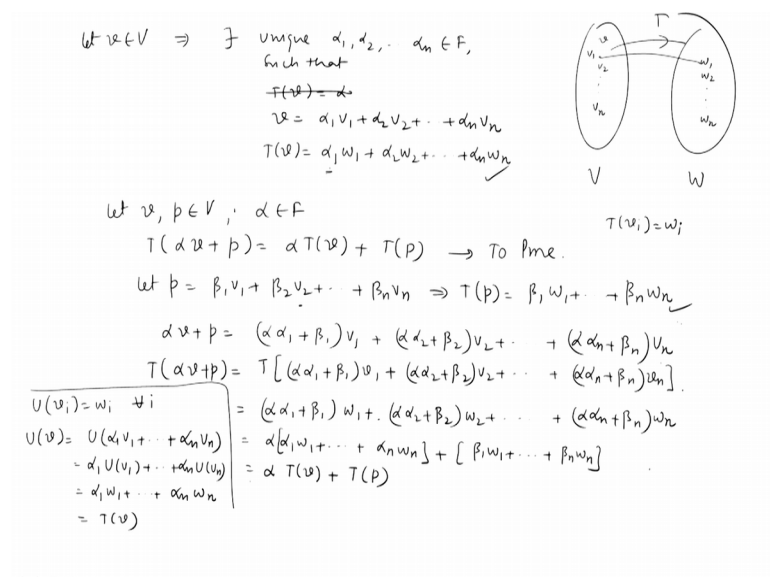 Let v ∈ V ⇒ ∃ unique α₁, α₂, .. αₙ ∈ F,
such that
T(v) = α
v = α₁v₁ + α₂v₂ + ·· + αₙvₙ
T(v) = α₁w₁ + α₂w₂ + ·· + αₙwₙ ✓
T
v
v₁
v₂
vₙ
w₁
w₂
wₙ
V W
T(vᵢ) = wᵢ
Let v, p ∈ V, α ∈ F
T(αv + p) = αT(v) + T(p) → To Prove.
Let p = β₁v₁ + β₂v₂ + ·· + βₙvₙ ⇒ T(p) = β₁w₁ + ·· + βₙwₙ ✓
αv + p = (αα₁ + β₁)v₁ + (αα₂ + β₂)v₂ + ·· + (ααₙ + βₙ)vₙ
T(αv + p) = T[(αα₁ + β₁)v₁ + (αα₂ + β₂)v₂ + ·· + (ααₙ + βₙ)vₙ].
= (αα₁ + β₁)w₁ + (αα₂ + β₂)w₂ + ·· + (ααₙ + βₙ)wₙ
= α[α₁w₁ + ·· + αₙwₙ] + [β₁w₁ + ·· + βₙwₙ]
= α T(v) + T(p)
U(vᵢ) = wᵢ ∀i
U(v) = U(α₁v₁ + ·· + αₙvₙ)
= α₁U(v₁) + ·· + αₙU(vₙ)
= α₁w₁ + ·· + αₙwₙ
= T(v)